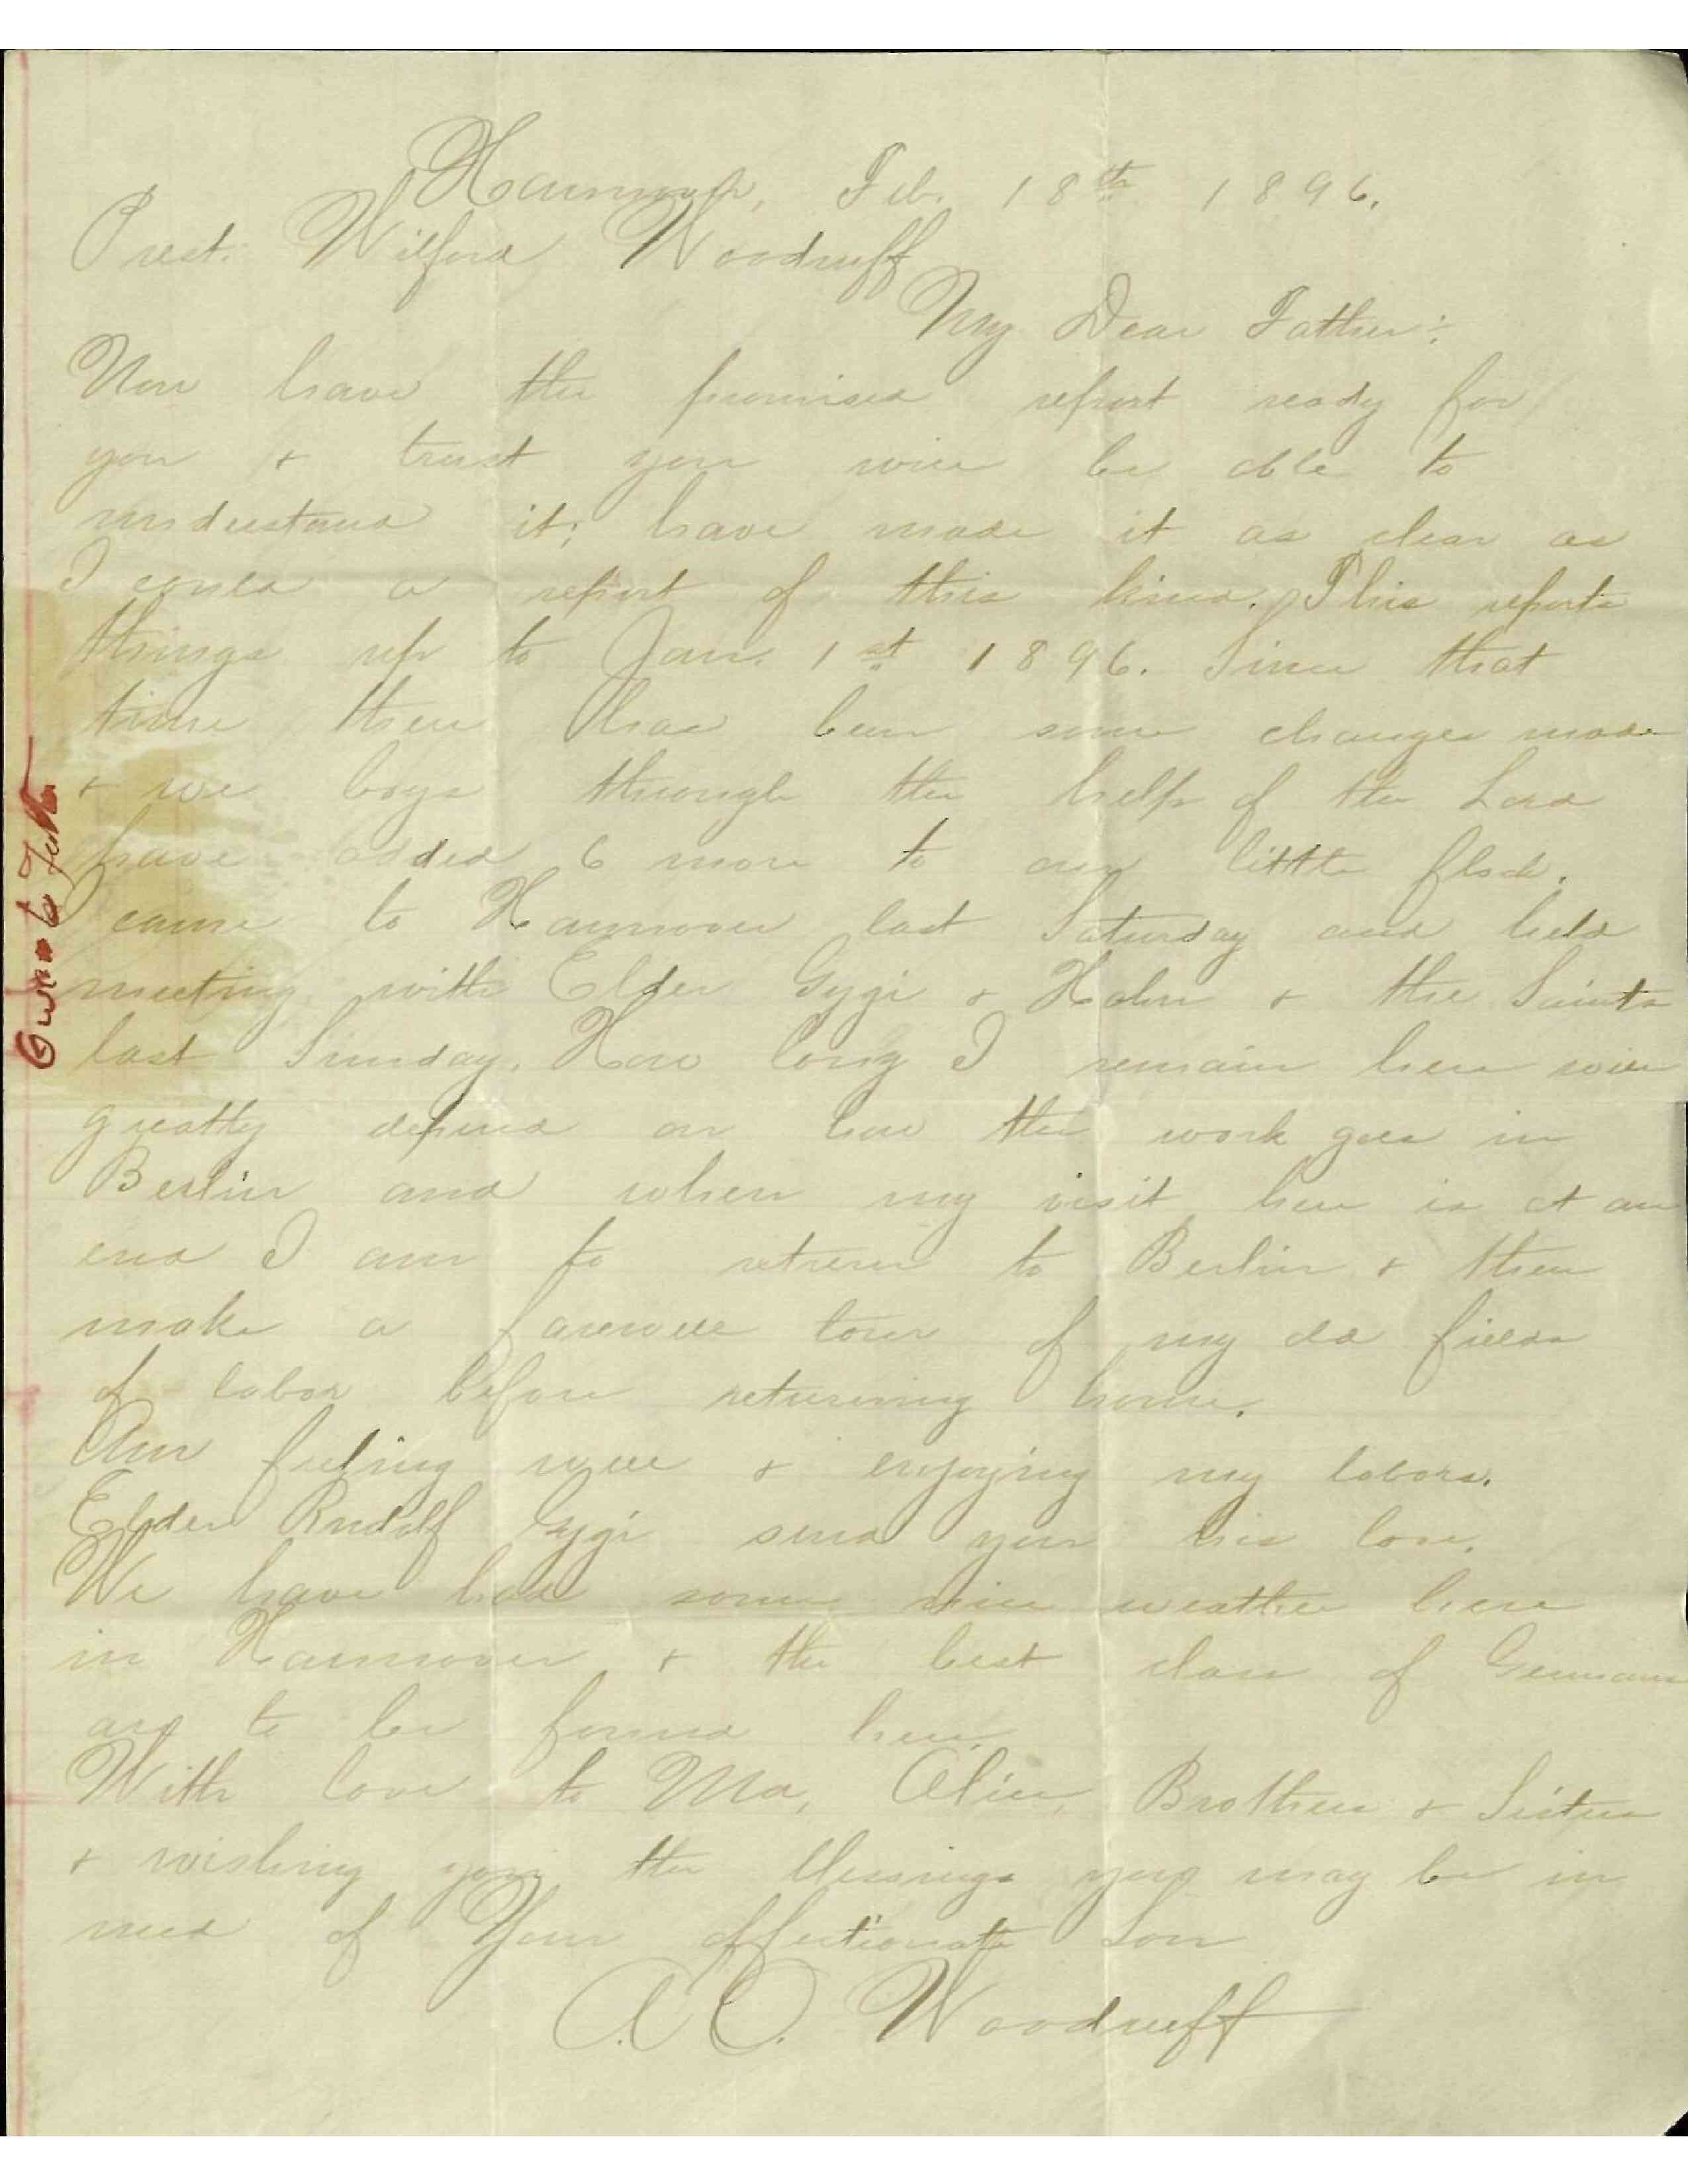 Hannover, Feb. 18th 1896.
Prest. Wilford Woodruff
My Dear Father:
Now have the promised report ready for
you & trust you will be able to
understand it; have made it as clear as
I could a report of this kind. This reports
things up to Jan. 1st 1896. Since that
time there has been some changes made
& we boys through the help of the Lord
have added 6 more to our little flock.
I came to Hannover last Saturday and held
meeting with Elder Gygi & Hahn & the Saints
last Sunday. How long I remain here will
greatly depend on how the work goes in
Berlin and when my visit here is at an
end I am to return to Berlin & then
make a farewell tour of my old fields
of labor before returning home.
Am feeling well & enjoying my labors.
Elder Rudolf Gygi send you his love.
We have had some nice weather here
in Hannover & the best class of Germans
are to be found here.
With love to Ma, Alice, Brothers & Sisters
& wishing you the blessings you may be in
need of Your affectionate Son
A. O. Woodruff
Owen to Father